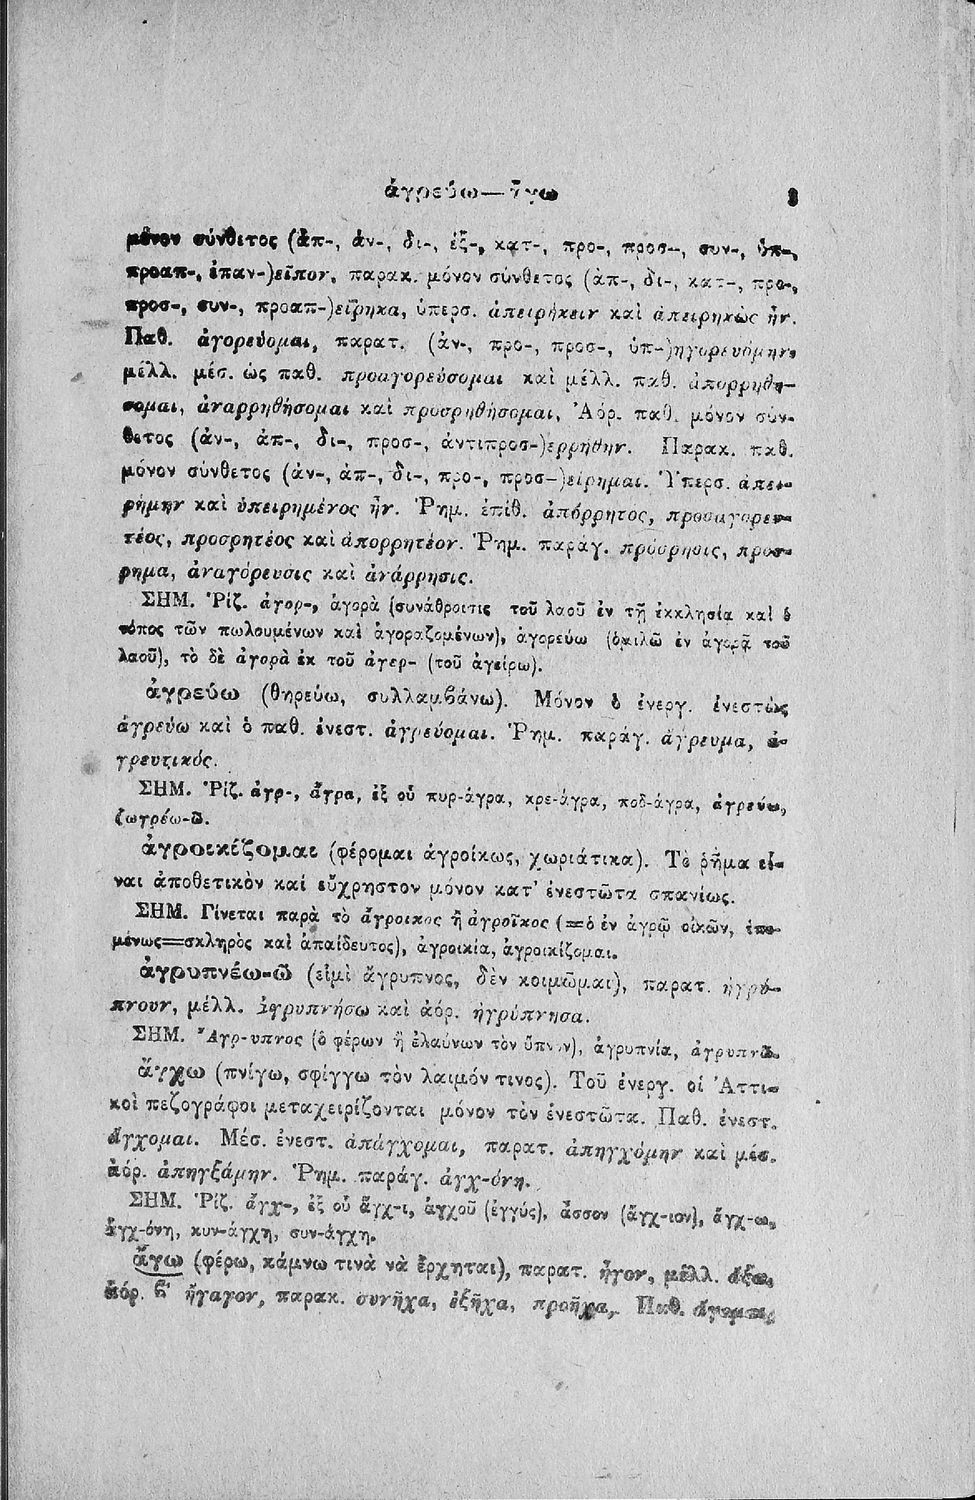 ἀγρεύω—ἄγω 3
μόνον σύνθετος (ἀπ-, ἀν-, δι-, ἐξ-, κατ-, προ-, προσ-, συν-, ὑπ-,
προαπ-, ἐπαν-)εῖπον, παρακ. μόνον σύνθετος (ἀπ-, δι-, κατ-, προ-,
προσ-, συν-, προαπ-)είρηκα, ὑπερσ. ἀπειρήκειν καὶ ἀπειρηκὼς ἦν.
Παθ. ἀγορεύομαι, παρατ. (ἀν-, προ-, προσ-, ὑπ-)ηγορευόμην,
μέλλ. μέσ. ὡς παθ. προαγορεύσομαι καὶ μέλλ. παθ. ἀπορρηθή-
σομαι, ἀναρρηθήσομαι καὶ προσρηθήσομαι, Ἀόρ. παθ. μόνον σύν-
θετος (ἀν-, ἀπ-, δι-, προσ-, ἀντιπροσ-)ερρήθην. Παρακ. παθ.
μόνον σύνθετος (ἀν-, ἀπ-, δι-, προ-, προσ-)είρημαι. Ὑπερσ. ἀπει-
ρήμην καὶ ὑπειρημένος ἦν. Ῥημ. ἐπίθ. ἀπόρρητος, προσαγορευ-
τέος, προσρητέος καὶ ἀπορρητέον. Ῥημ. παράγ. πρόσρησις, προσ-
ρημα, ἀναγόρευσις καὶ ἀνάρρησις.
ΣΗΜ. Ῥίζ. ἀγορ-, ἀγορὰ (συνάθροισις τοῦ λαοῦ ἐν τῇ ἐκκλησία καὶ ὁ
τόπος τῶν πωλουμένων καὶ ἀγοραζομένων), ἀγορεύω (ὁμιλῶ ἐν ἀγορᾷ τοῦ
λαοῦ), τὸ δὲ ἀγορὰ ἐκ τοῦ ἀγερ- (τοῦ ἀγείρω).
ἀγρεύω (θηρεύω, συλλαμβάνω). Μόνον ὁ ἐνεργ. ἐνεστὼς
ἀγρεύω καὶ ὁ παθ. ἐνεστ. ἀγρεύομαι. Ῥημ. παράγ. ἄγρευμα, ἀ-
γρευτικός.
ΣΗΜ. Ῥίζ. ἀγρ-, ἄγρα, ἐξ οὗ πυρ-άγρα, κρε-άγρα, ποδ-άγρα, ἀγρεύω,
ζωγρέω-ῶ.
ἀγροικίζομαι (φέρομαι ἀγροίκως, χωριάτικα). Τὸ ῥῆμα εἶ-
ναι ἀποθετικὸν καί εὔχρηστον μόνον κατ' ἐνεστῶτα σπανίως.
ΣΗΜ. Γίνεται παρὰ τὸ ἄγροικος ἢ ἀγροῖκος (=ὁ ἐν ἀγρῷ οἰκῶν, ἑπο-
μένως=σκληρὸς καὶ ἀπαίδευτος), ἀγροικία, ἀγροικίζομαι.
ἀγρυπνέω-ῶ (εἶμὶ ἄγρυπνος, δὲν κοιμῶμαι), παρατ. ἠγρύ-
πνουν, μέλλ. ἀγρυπνήσω καὶ ἀόρ. ἠγρύπνησα.
ΣΗΜ. Ἄγρ-υπνος (ὁ φέρων ἢ ἐλαύνων τὸν ὕπνον), ἀγρυπνία, ἀγρυπνῶ.
ἄγχω (πνίγω, σφίγγω τὸν λαιμόν τινος). Τοῦ ἐνεργ. οἱ Ἀττι-
κοὶ πεζογράφοι μεταχειρίζονται μόνον τὸν ἐνεστῶτα. Παθ. ἐνεστ.
ἄγχομαι. Μέσ. ἐνεστ. ἀπάγχομαι, παρατ. ἀπηγχόμην καὶ μέσ.
ἀόρ. ἀπηγξάμην. Ῥημ. παράγ. ἀγχ-όνη.
ΣΗΜ. Ῥίζ. ἄγχ-, ἐξ οὗ ἄγχ-ι, ἀγχοῦ (ἐγγύς), ἆσσον (ἄγχ-ιον), ἄγχ-ω,
ἀγχ-όνη, κυν-άγχη, συν-άγχη.
ἄγω (φέρω, κάμνω τινὰ νὰ ἔρχηται), παρατ. ἦγον, μέλλ. ἄξω,
ἀόρ. β' ἤγαγον, παρακ. συνῆχα, ἐξῆχα, προῆχα, Παθ. ἄγομαι,